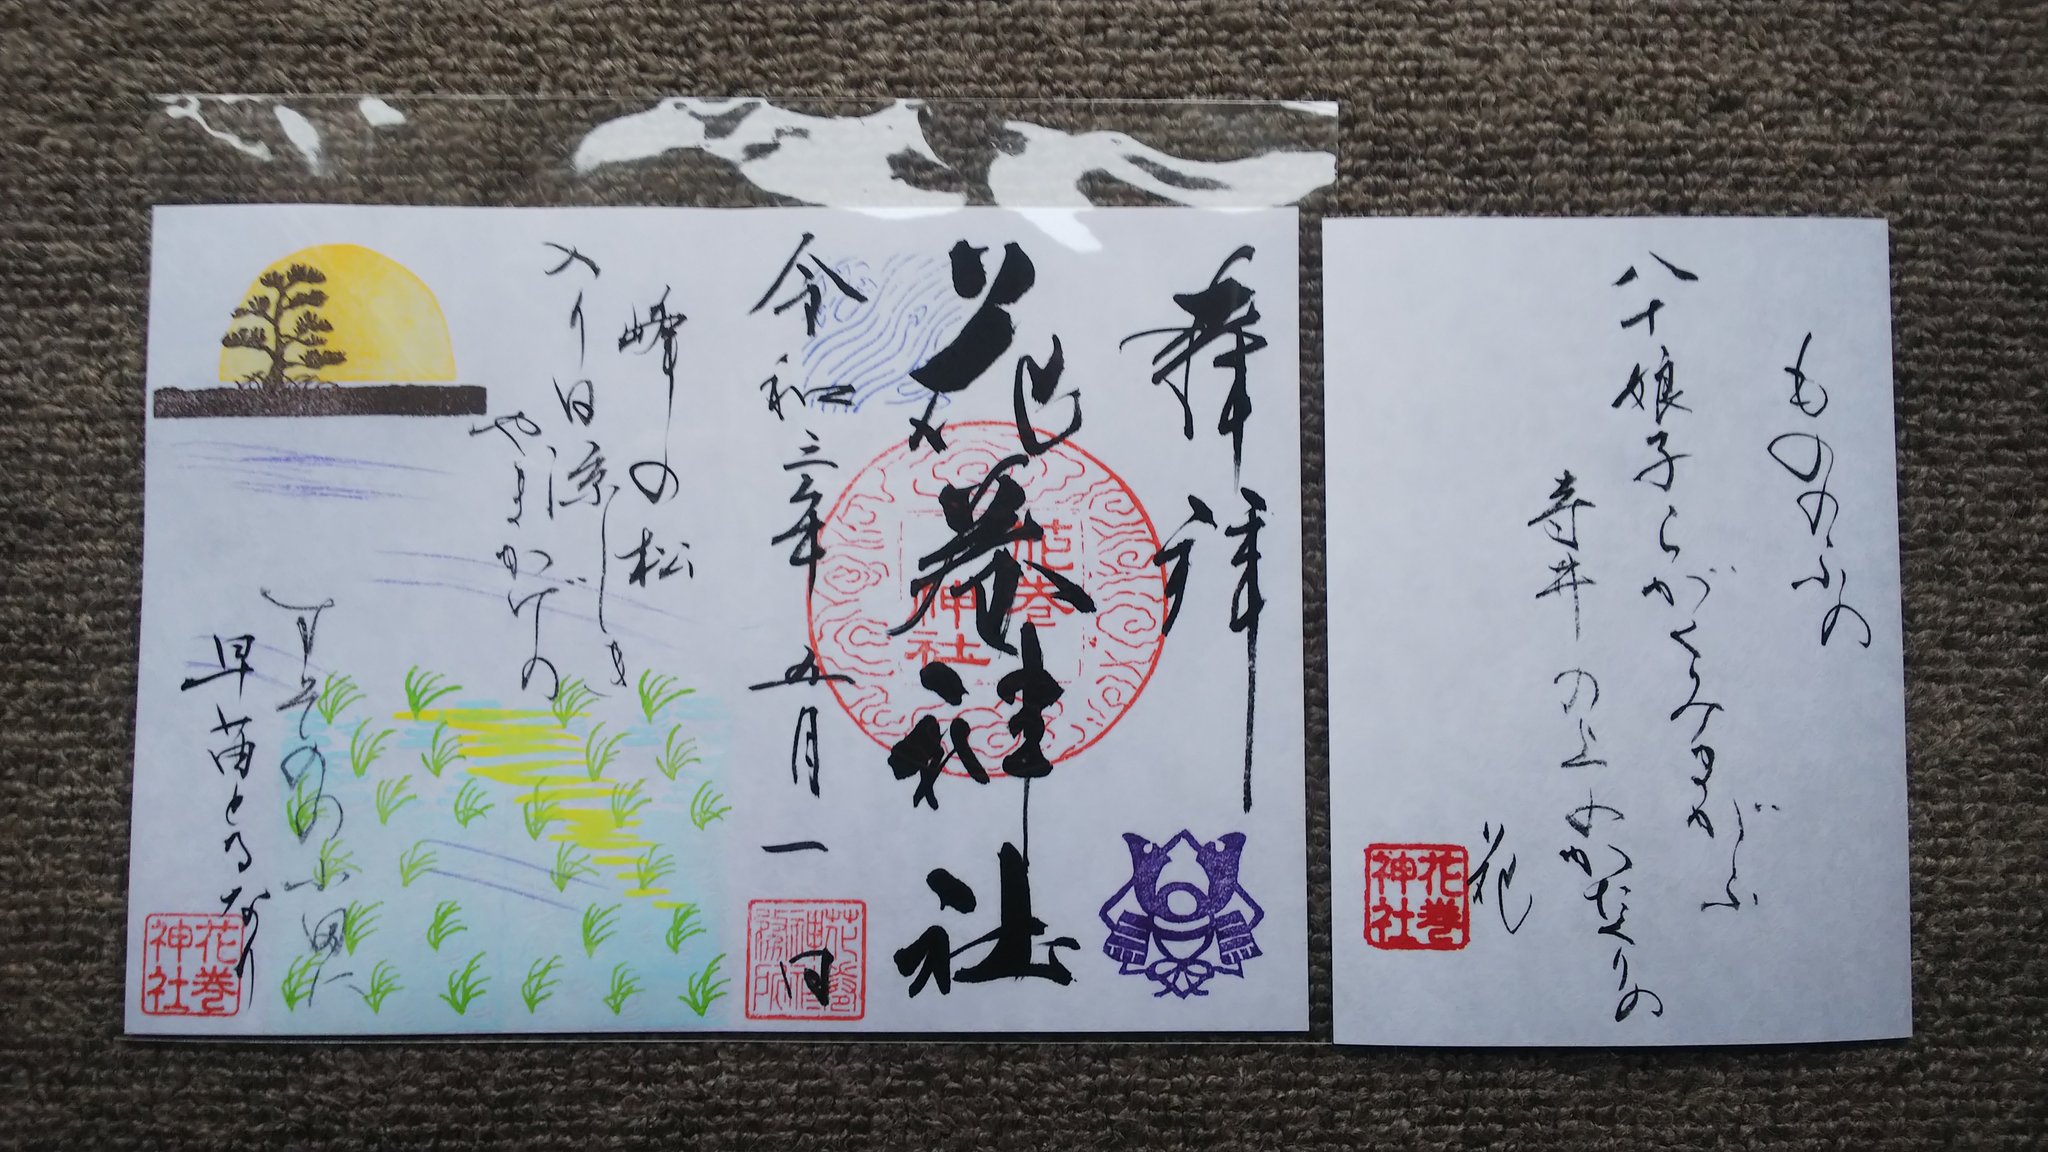 もののふの
八十娘子らがくみまがふ
寺井の上のかたくりの
花
花巻神社
奉拝
花巻神社
花巻神社
令和三年五月一日
花巻神社務所
峰の松
入り日涼しき
やまかげの
すそのの小田に
早苗とるなり
花巻神社